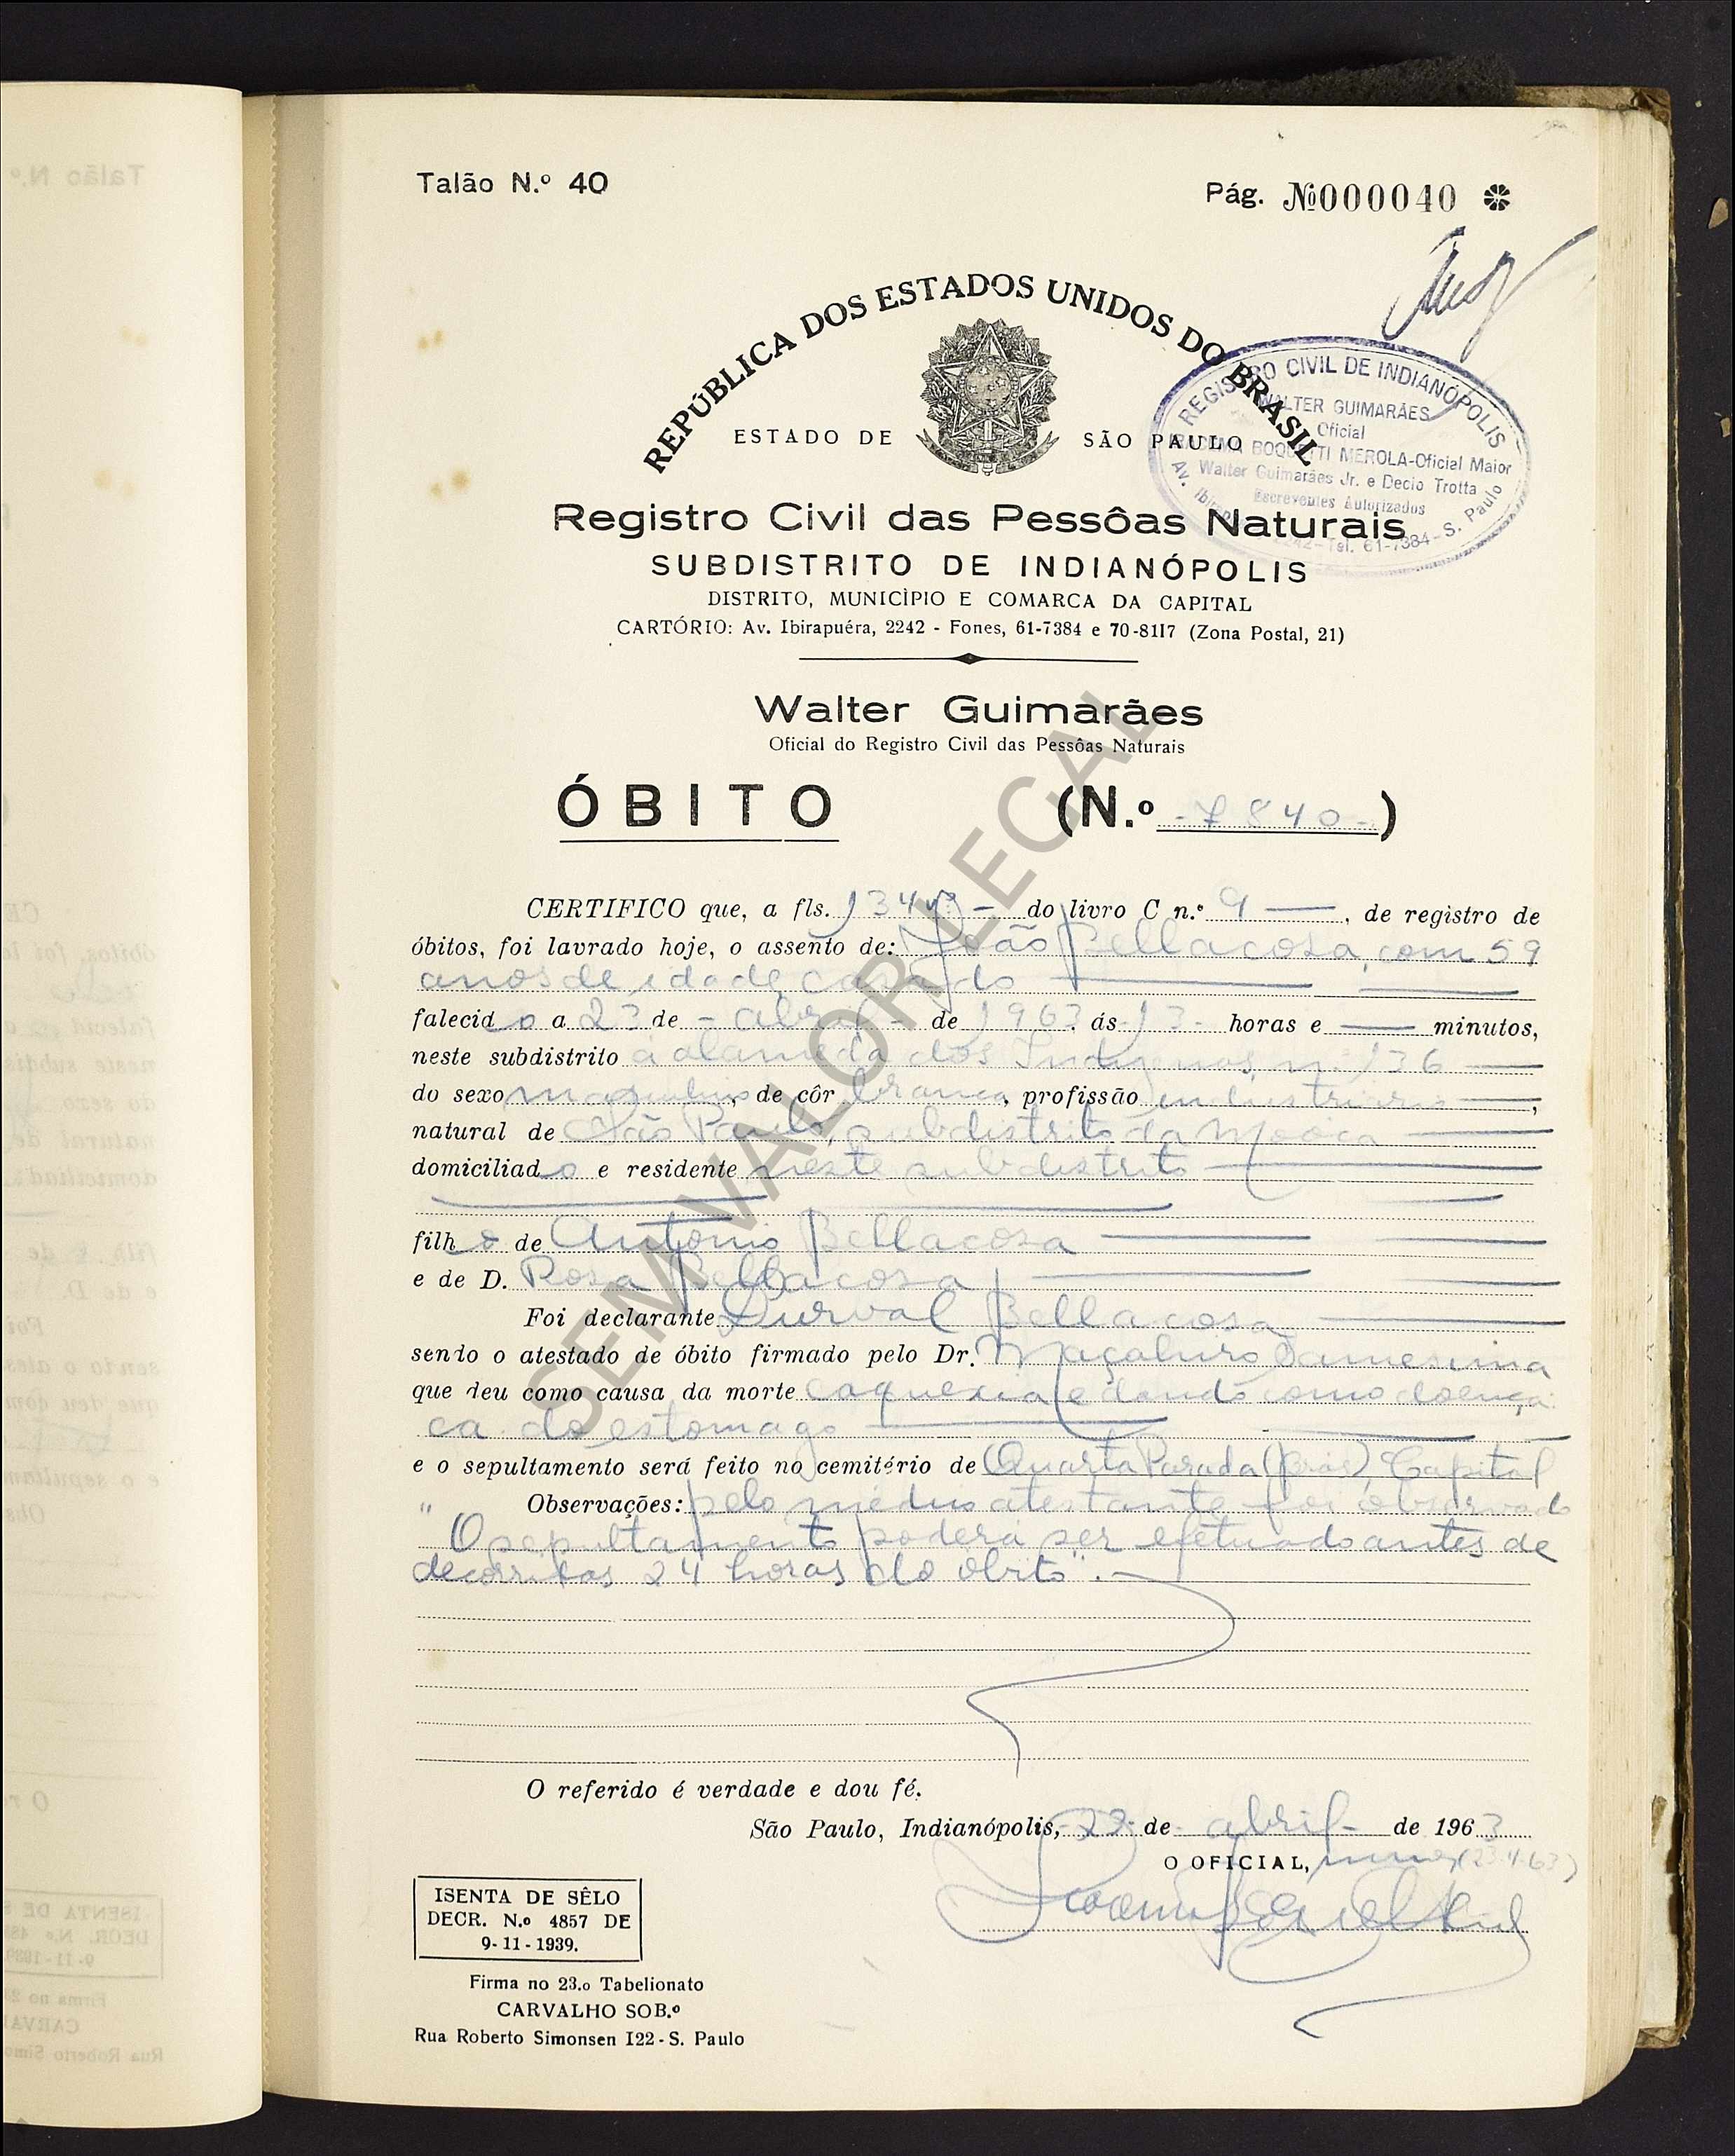 Talão N.º 40
Pág. №000040
REPÚBLICA DOS ESTADOS UNIDOS DO BRASIL
ESTADO DE SÃO PAULO
REGISTRO CIVIL DE INDIANÓPOLIS
WALTER GUIMARÃES
Oficial
BOQUETTI MEROLA-Oficial Maior
Walter Guimarães Jr. e Decio Trotta
Escreventes Autorizados
Av. 2242-Tel. 61-7384-S. Paulo
Registro Civil das Pessôas Naturais
SUBDISTRITO DE INDIANÓPOLIS
DISTRITO, MUNICÌPIO E COMARCA DA CAPITAL
CARTÓRIO: Av. Ibirapuéra, 2242 - Fones, 61-7384 e 70-8117 (Zona Postal, 21)
Walter Guimarães
Oficial do Registro Civil das Pessôas Naturais
ÓBITO (N.º -7840-)
CERTIFICO que, a fls. 134vº - do livro C n.º 9 —, de registro de
óbitos, foi lavrado hoje, o assento de: João Bellacosa, com 59
anos de idade casado
falecido a 23 de - abril - de 1963. ás 13- horas e — minutos,
neste subdistrito á alameda dos Indigenas, n. 136
do sexo masculino, de côr branca, profissão industriario,
natural de São Paulo, subdistrito da Moóca
domiciliado e residente neste subdistrito
filho de Antonio Bellacosa
e de D. Rosa Bellacosa
Foi declarante Durval Bellacosa
sendo o atestado de óbito firmado pelo Dr.
que deu como causa da morte caquexia e dando como doença
ca do estomago
e o sepultamento será feito no cemitério de Quarta Parada (Brás), Capital
Observações: pelo médico atestante foi observado
"O sepultamento poderá ser efetuado antes de
decorridas 24 horas do óbito".
O referido é verdade e dou fé.
São Paulo, Indianópolis, 23 de abril - de 1963
O OFICIAL, (23-4-63)
ISENTA DE SÊLO
DECR. N.º 4857 DE
9-11-1939.
Firma no 23.o Tabelionato
CARVALHO SOB.º
Rua Roberto Simonsen 122 - S. Paulo
SEM VALOR LEGAL